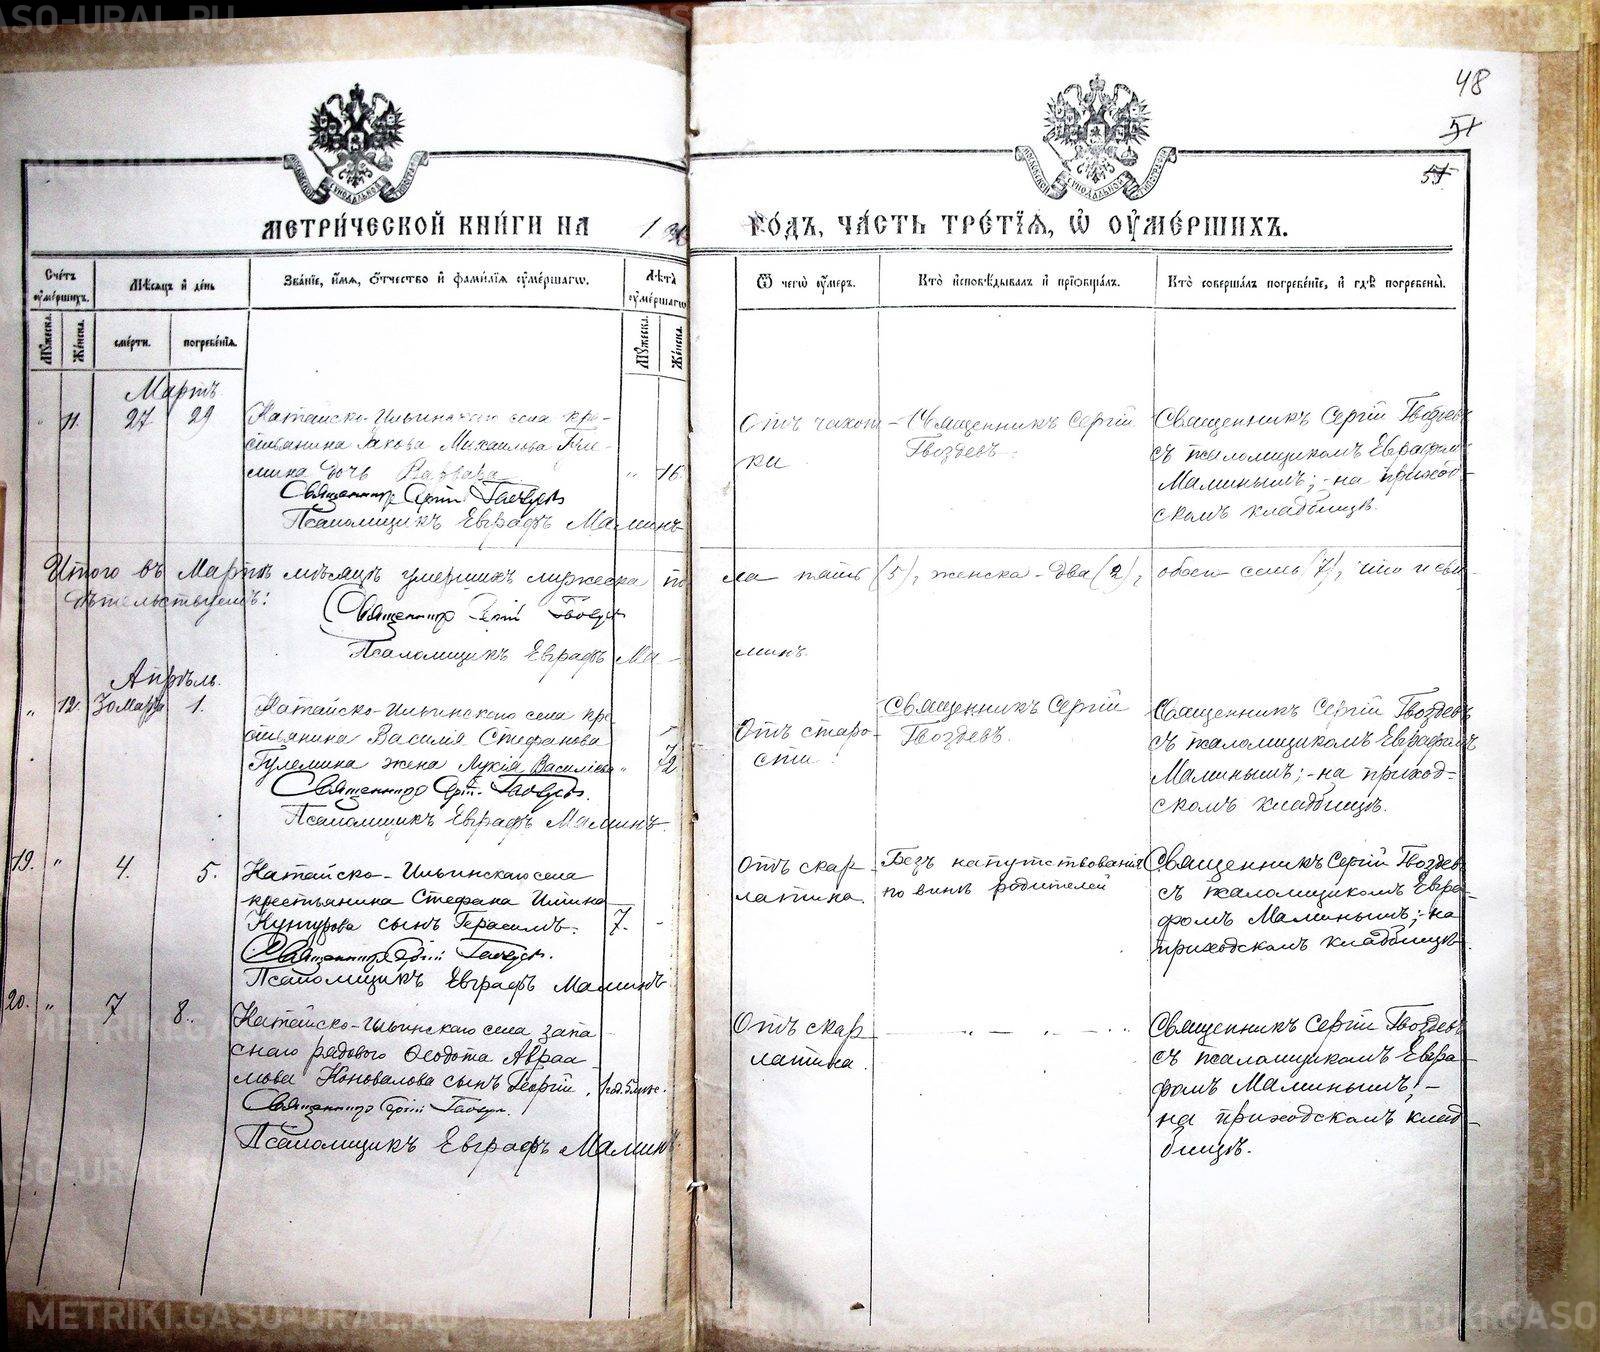 48
51
51
МЕТРИЧЕСКОЙ КНИГИ НА 1 ГОДЪ, ЧАСТЬ ТРЕТІЯ, Ѡ ОУМЕРШИХЪ.
Счетъ оумершихъ.
Мужеска.
Женска.
Мѣсяцъ и день
смерти.
погребенія.
Званіе, имя, отчество и фамилія оумершагѡ.
Лѣта оумершагѡ
Мужеска.
Женска.
Ѿ чегѡ оумеръ.
Кто исповѣдывалъ и пріобщалъ.
Кто совершалъ погребеніе, и гдѣ погребены.
Мартъ
11. 27 29
Катайско-Ильинскаго села кре-
стьянина Іакова Михаилова Гуле-
мина дочь Варвара
" 16.
Священникъ Сергій Гвоздевъ
Псаломщикъ Евграфъ Малинъ
Отъ чахот-
ки
Священникъ Сергій
Гвоздевъ.
Священникъ Сергій Гвоздевъ
съ псаломщикомъ Евграфомъ
Малинымъ; на приход-
скомъ кладбищѣ.
Итого въ Мартѣ мѣсяцѣ умершихъ мужеска по
ла пять (5), женска - два (2), обоего семь (7), что и сви
дѣтельствуемъ:
Священникъ Сергій Гвоздевъ
Псаломщикъ Евграфъ Ма-
линъ.
Апрѣль.
" 12. 30 Марта 1.
Катайско-Ильинскаго села кре
стьянина Василія Стефанова
Гулемина жена Лукія Васильева " 72
Священникъ Сергій Гвоздевъ.
Псаломщикъ Евграфъ Малинъ.
Отъ старо-
сти.
Священникъ Сергій
Гвоздевъ.
Священникъ Сергій Гвоздевъ
съ псаломщикомъ Евграфомъ
Малинымъ; - на приход-
скомъ кладбищѣ.
19. " 4. 5.
Катайско-Ильинскаго села
крестьянина Стефана
Кунгурова сынъ Герасимъ. 7. -
Священникъ Сергій Гвоздевъ.
Псаломщикъ Евграфъ Малинъ
Отъ скар-
латина.
Безъ напутствованія
по винѣ родителей
Священникъ Сергій Гвоздевъ
съ псаломщикомъ Евгра-
фомъ Малинымъ; - на
приходскомъ кладбищѣ.
20. " 7 8.
Катайско-Ильинскаго села запа
снаго рядового Ѳеодота Авраа
мова Коновалова сынъ Георгій. 1 год. 5 мѣс.
Священникъ Сергій Гвоздевъ.
Псаломщикъ Евграфъ Малинъ.
Отъ скар
латина.
- " - " - "
Священникъ Сергій Гвоздевъ
съ псаломщикомъ Евгра-
фомъ Малинымъ; -
на приходскомъ клад-
бищѣ.
METRIKI.GASO-URAL.RU